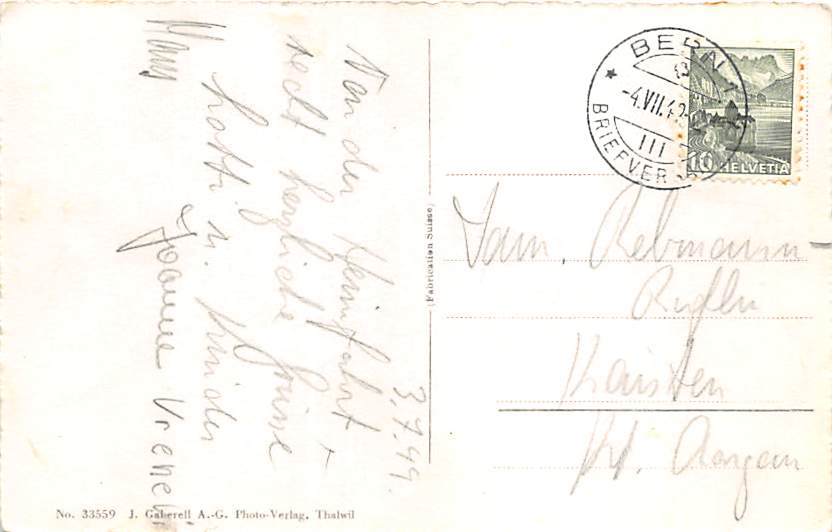 3.7.49.
Von der Heimfahrt
recht herzliche Grüsse
Hatti u. Kinder
Joanne Vreneli
Hans
BERN 1
-4.VII.49
III
BRIEFVERS
10 HELVETIA
Fam. Rebmann-
Kaisten
Kt. Aargau
(Fabrication Suisse)
No. 33559 J. Gaberell A.-G. Photo-Verlag, Thalwil